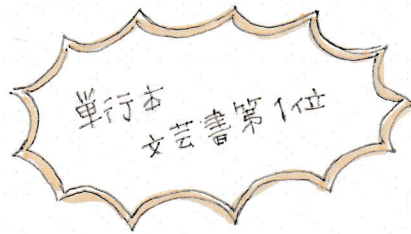 単行本
文芸書第1位